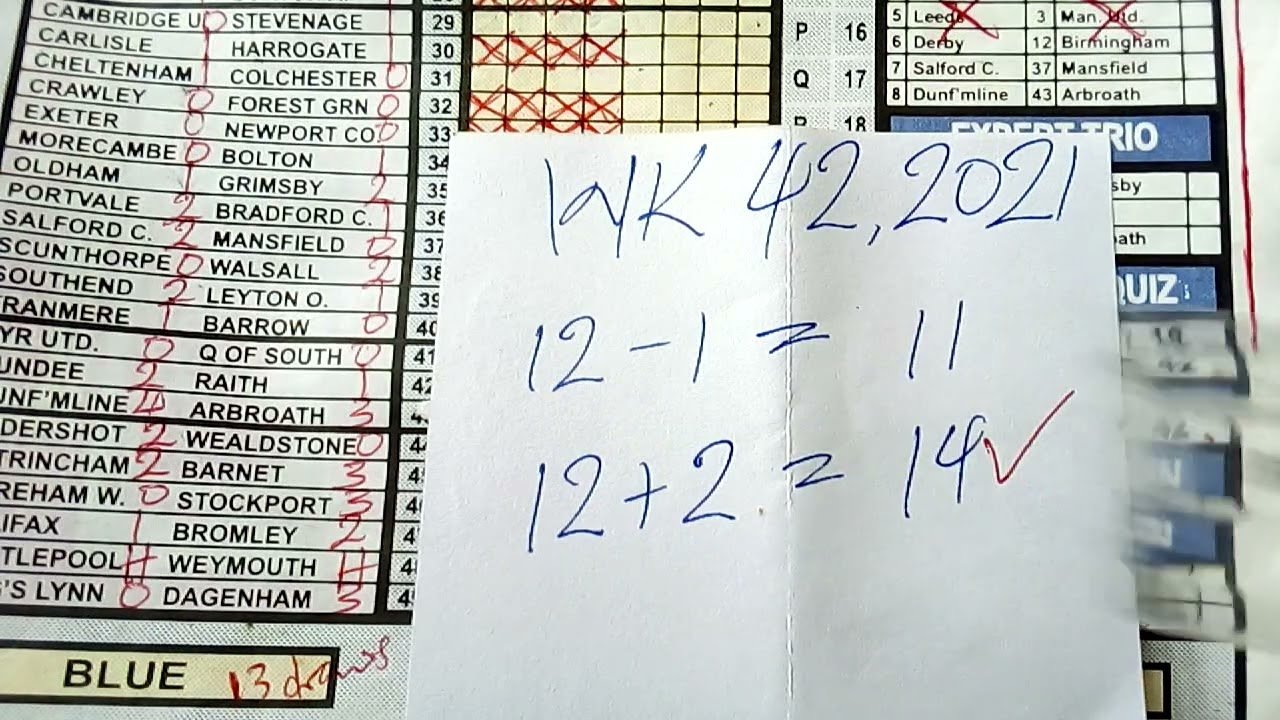 CAMBRIDGE U 0 STEVENAGE 1 29
CARLISLE 1 HARROGATE 1 30
CHELTENHAM 1 COLCHESTER 0 31
CRAWLEY 0 FOREST GRN 0 32
EXETER 0 NEWPORT CO 0 33
MORECAMBE 0 BOLTON 1 34
OLDHAM 1 GRIMSBY 2 35
PORTVALE 2 BRADFORD C. 1 36
SALFORD C. 2 MANSFIELD 0 37
SCUNTHORPE 0 WALSALL 2 38
SOUTHEND 2 LEYTON O. 1 39
TRANMERE 1 BARROW 0 40
YR UTD. 0 Q OF SOUTH 0 41
UNDEE 2 RAITH 1 42
UNF'MLINE 4 ARBROATH 3
DERSHOT 2 WEALDSTONE 0 4
TRINCHAM 2 BARNET 3 4
REHAM W. 0 STOCKPORT 3 4
IFAX 1 BROMLEY 2 4
TLEPOOL H WEYMOUTH H 4
'S LYNN 0 DAGENHAM 3 4
BLUE 13 draws
P 16
Q 17
R 18
5 Leeds 3 Man. Utd.
6 Derby 12 Birmingham
7 Salford C. 37 Mansfield
8 Dunf'mline 43 Arbroath
EXPERT TRIO
sby
ath
QUIZ
WK 42, 2021
12 - 1 = 11
12 + 2 = 14 ✓